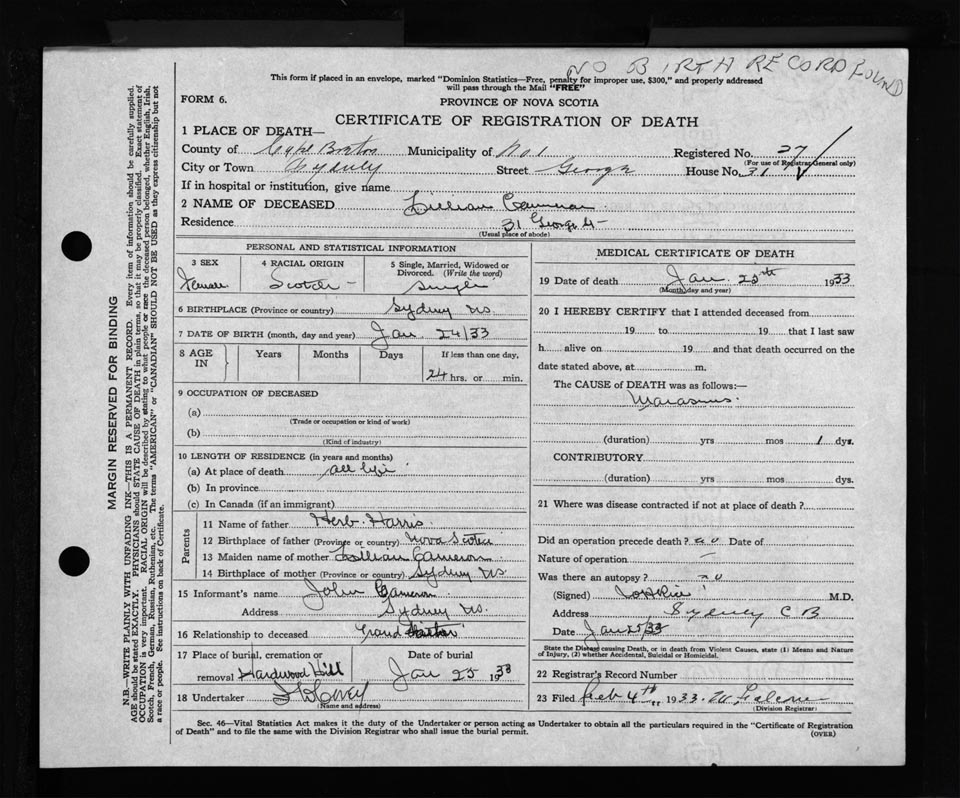 NO BIRTH RECORD FOUND
This form if placed in an envelope, marked "Dominion Statistics—Free, penalty for improper use, $300," and properly addressed
will pass through the Mail "FREE"
FORM 6.
PROVINCE OF NOVA SCOTIA
CERTIFICATE OF REGISTRATION OF DEATH
1 PLACE OF DEATH—
County of Cape Breton Municipality of No 1 Registered No. 27
(For use of Registrar General only)
City or Town Sydney Street George House No. 31
If in hospital or institution, give name
2 NAME OF DECEASED Lillian Cameron
Residence 31 George St
(Usual place of abode)
PERSONAL AND STATISTICAL INFORMATION
3 SEX Female
4 RACIAL ORIGIN Scotch
5 Single, Married, Widowed or Divorced. (Write the word) Single
6 BIRTHPLACE (Province or country) Sydney NS.
7 DATE OF BIRTH (month, day and year) Jan. 24/33
8 AGE IN Years Months Days If less than one day, 24 hrs. or min.
9 OCCUPATION OF DECEASED
(a)
(Trade or occupation or kind of work)
(b)
(Kind of industry)
10 LENGTH OF RESIDENCE (in years and months)
(a) At place of death all life
(b) In province
(c) In Canada (if an immigrant)
Parents
11 Name of father Herb. Harris
12 Birthplace of father (Province or country) Nova Scotia
13 Maiden name of mother Lillian Cameron
14 Birthplace of mother (Province or country) Sydney NS
15 Informant's name John Cameron
Address Sydney NS.
16 Relationship to deceased Grand father
17 Place of burial, cremation or removal Hardwood Hill
Date of burial Jan 25 1933
18 Undertaker
(Name and address)
MEDICAL CERTIFICATE OF DEATH
19 Date of death Jan. 25th 1933
(Month, day and year)
20 I HEREBY CERTIFY that I attended deceased from
19 to 19 that I last saw
h alive on 19 and that death occurred on the
date stated above, at m.
The CAUSE of DEATH was as follows:—
Marasmus.
(duration) yrs mos 1 dys.
CONTRIBUTORY
(duration) yrs mos dys.
21 Where was disease contracted if not at place of death?
Did an operation precede death? no Date of
Nature of operation —
Was there an autopsy? no
(Signed) M.D.
Address Sydney C B
Date Jan 25/33
State the Disease causing Death, or in death from Violent Causes, state (1) Means and Nature
of Injury, (2) whether Accidental, Suicidal or Homicidal.
22 Registrar's Record Number
23 Filed Feb 4th 1933.
(Division Registrar)
Sec. 46—Vital Statistics Act makes it the duty of the Undertaker or person acting as Undertaker to obtain all the particulars required in the "Certificate of Registration
of Death" and to file the same with the Division Registrar who shall issue the burial permit. (OVER)
MARGIN RESERVED FOR BINDING
N.B.—WRITE PLAINLY WITH UNFADING INK—THIS IS A PERMANENT RECORD. Every item of information should be carefully supplied.
AGE should be stated EXACTLY. PHYSICIANS should STATE CAUSE OF DEATH in plain terms, so that it may be properly classified. Exact statement of
OCCUPATION is very important. RACIAL ORIGIN will be described by stating to what people or race the deceased person belonged, whether English, Irish,
Scotch, French, German, Russian, Ruthenian, etc. The terms "AMERICAN" or "CANADIAN" SHOULD NOT BE USED as they express citizenship but not
a race or people. See instructions on back of Certificate.